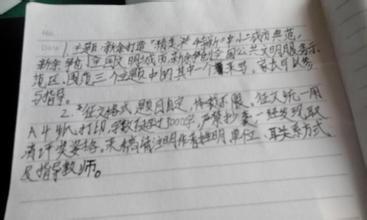 No.
Date
1.主题:新余打造"精美
新余争创全国文明城市,新余争创全国公共文明服务示
范区,围绕三个主题中的其中一个来写,家长可以参
与指导。
2.征文格式,题目自定,体裁不限,征文统一用
A4纸打印,字数在1000字,严禁抄袭,一经发现,取
消评奖资格。来稿请注明作者姓名,单位,联系方式
及指导教师。